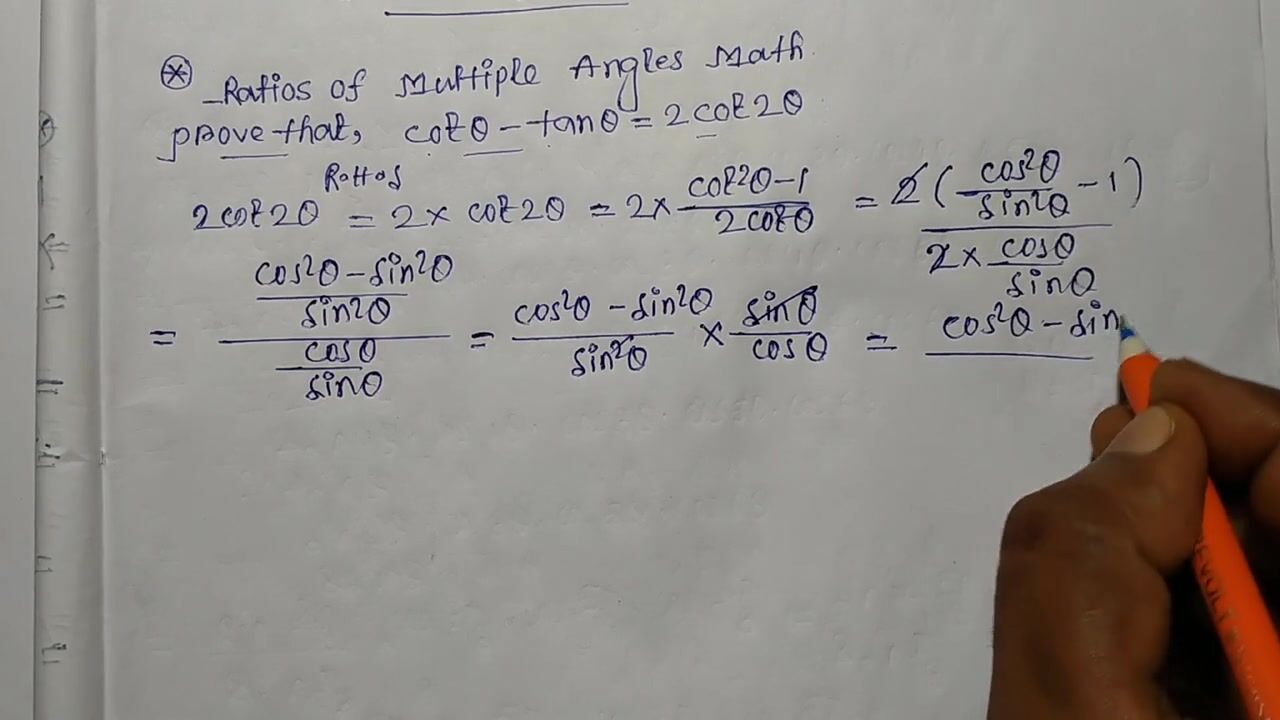 * Ratios of Multiple Angles Math
prove that, cotθ - tanθ = 2cot2θ
Ratios
2cot2θ = 2 × cot2θ = 2 × (cot²θ - 1)/(2cotθ) = 2(cos²θ/sin²θ - 1)/(2 × cosθ/sinθ)
= ((cos²θ - sin²θ)/sin²θ)/(cosθ/sinθ) = (cos²θ - sin²θ)/sin²θ × sinθ/cosθ = cos²θ - sin